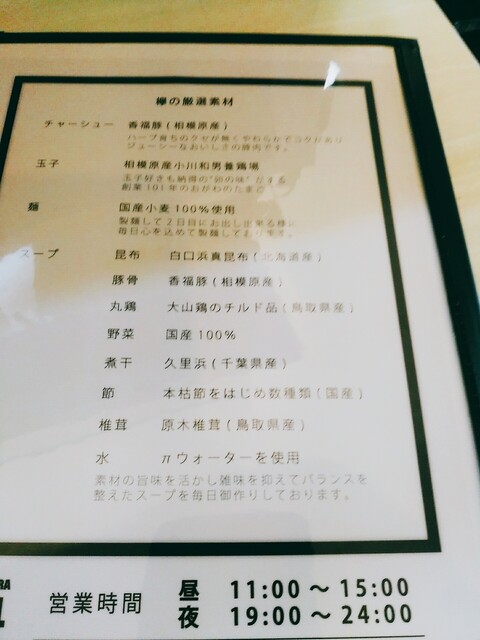 欅の厳選素材
チャーシュー 香福豚(相模原産)
ハーブ育ちのクセが無くやわらかでコクがあり
ジューシーなおいしさの豚肉です。
玉子 相模原産小川和男養鶏場
玉子好きも納得の"卵の味"がする
創業101年のおがわのたまご
麺 国産小麦100%使用
製麺して2日目にお出し出来る様に
毎日心を込めて製麺しております。
スープ 昆布 白口浜真昆布(北海道産)
豚骨 香福豚(相模原産)
丸鶏 大山鶏のチルド品(鳥取県産)
野菜 国産100%
煮干 久里浜(千葉県産)
節 本枯節をはじめ数種類(国産)
椎茸 原木椎茸(鳥取県産)
水 πウォーターを使用
素材の旨味を活かし雑味を抑えてバランスを
整えたスープを毎日御作りしております。
RA
営業時間 昼 11:00〜15:00
夜 19:00〜24:00